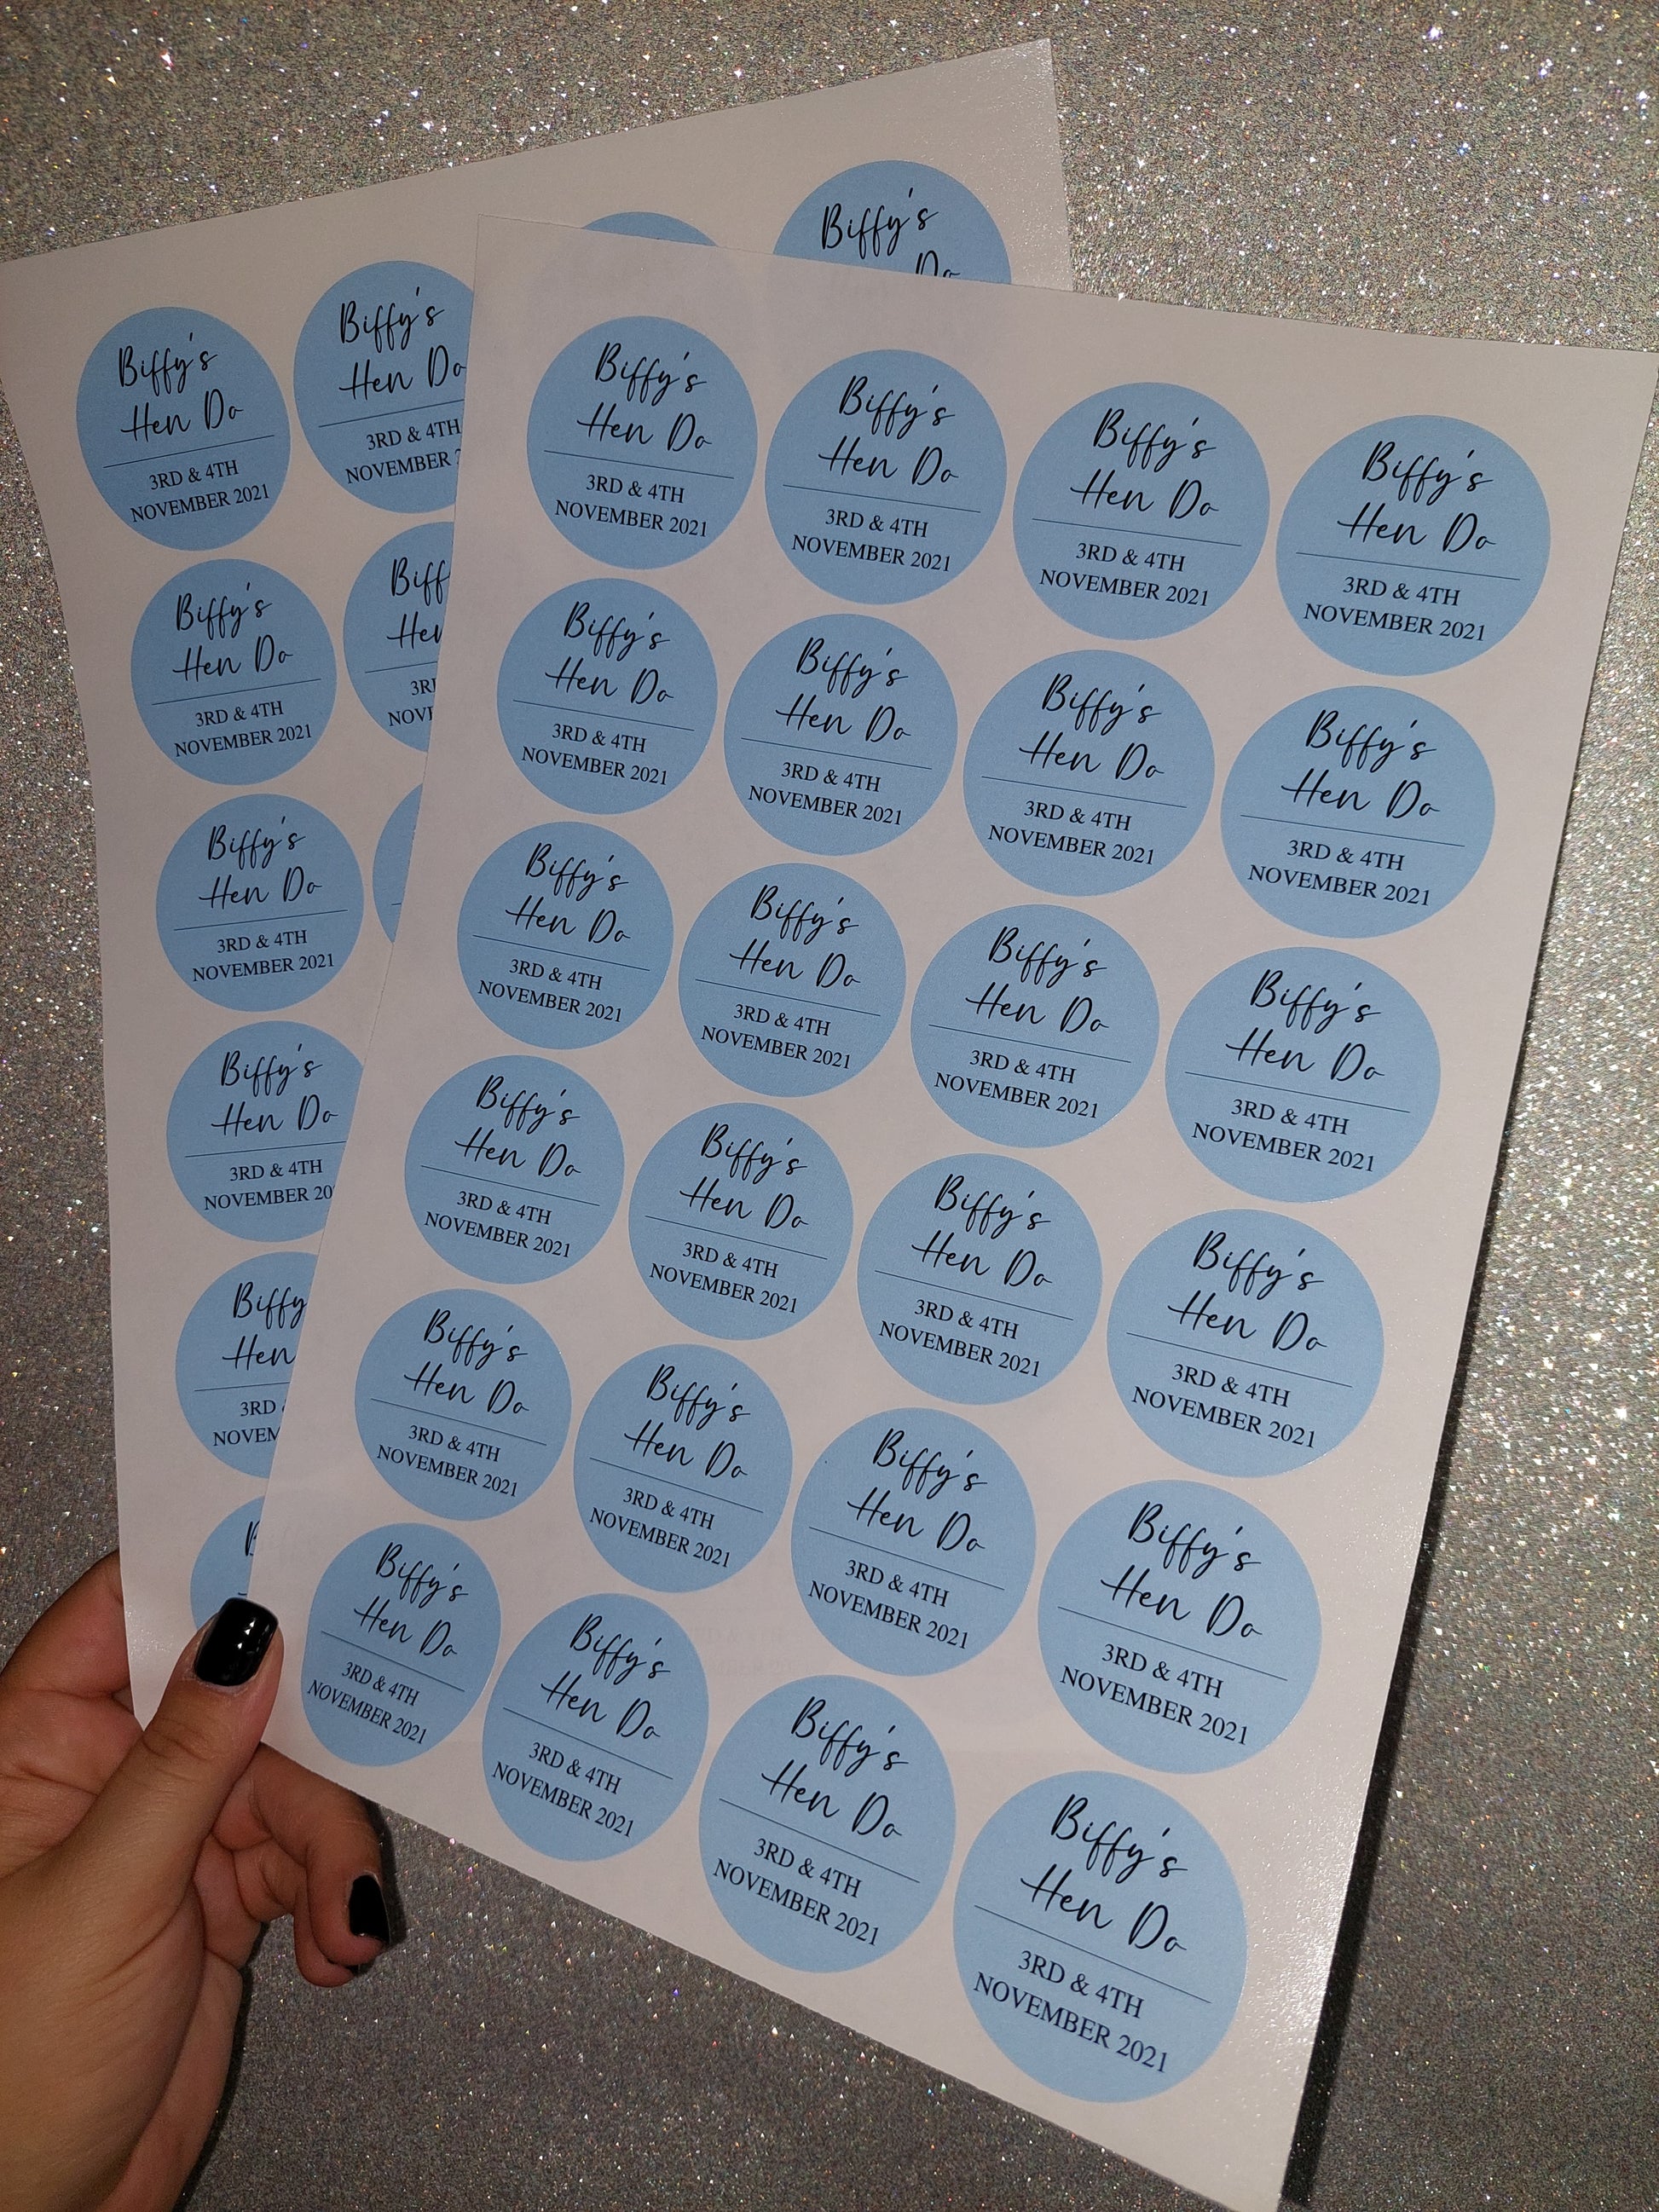 Biffy's
Do
Biffy's
Hen Do
3RD & 4TH
NOVEMBER
Biffy's
Hen Do
3RD & 4TH
NOVEMBER 2021
Biffy's
Hen Do
3RD & 4TH
NOVEMBER 2021
Biffy's
Hen Do
3RD & 4TH
NOVEMBER 2021
Biffy's
Hen Do
3RD & 4TH
NOVEMBER
Biffy
Hen
3RD
Biffy's
Hen Do
3RD & 4TH
NOVEMBER 2021
Biffy's
Hen Do
3RD & 4TH
NOVEMBER 2021
Biffy's
Hen Do
3RD & 4TH
NOVEMBER 2021
Biffy's
Hen Do
3RD & 4TH
NOVEMBER 2021
Biffy's
Hen Do
3RD & 4TH
NOVEMBER 2021
Biffy's
Hen Do
3RD & 4TH
NOVEMBER 2021
Biffy's
Hen Do
3RD & 4TH
NOVEMBER 2021
Biffy's
Hen Do
3RD & 4TH
NOVEMBER 2021
Biffy's
Hen Do
3RD & 4TH
NOVEMBER 2021
Biffy's
Hen Do
3RD & 4TH
NOVEMBER 2021
Biffy's
Hen Do
3RD & 4TH
NOVEMBER 2021
Biffy's
Hen Do
3RD & 4TH
NOVEMBER 2021
Biffy's
Hen Do
3RD & 4TH
NOVEMBER 2021
Biffy's
Hen Do
3RD & 4TH
NOVEMBER 2021
Biffy's
Hen Do
3RD & 4TH
NOVEMBER 2021
Biffy's
Hen Do
3RD & 4TH
NOVEMBER 2021
Biffy's
Hen Do
3RD & 4TH
NOVEMBER 2021
Biffy's
Hen Do
3RD & 4TH
NOVEMBER 2021
Biffy's
Hen Do
3RD & 4TH
NOVEMBER 2021
Biffy's
Hen Do
3RD & 4TH
NOVEMBER 2021
Biffy's
Hen Do
3RD & 4TH
NOVEMBER 2021
Biffy's
Hen Do
3RD & 4TH
NOVEMBER 2021
Biffy's
Hen Do
3RD & 4TH
NOVEMBER 2021
Biffy's
Hen Do
3RD & 4TH
NOVEMBER 2021